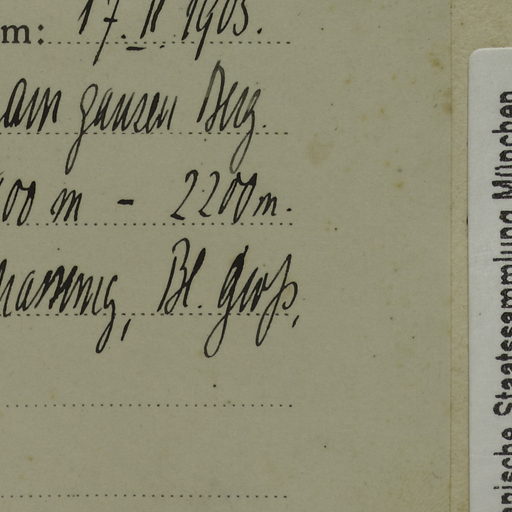 m: 17. II 1903.
am ganzen Berg
00 m - 2200 m.
Bl. groß,
anische Staatssammlung München